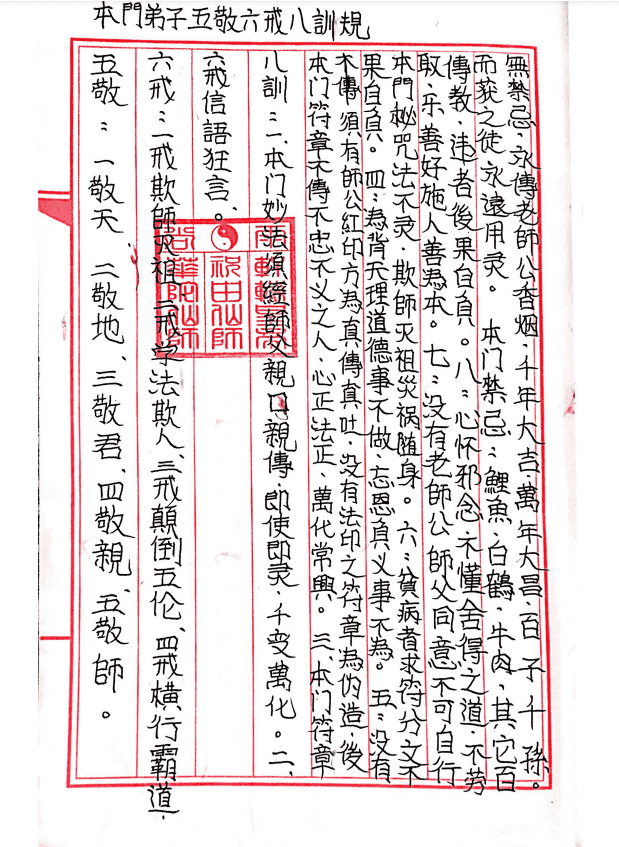 本門弟子五敬六戒八訓規
五敬：一敬天、二敬地、三敬君、四敬親、五敬師。
六戒：一戒欺師灭祖、二戒学法欺人、三戒顛倒五伦、四戒橫行霸道、
六戒信語狂言。
八訓：一、本门妙法須經師父親口親傳，即使即灵，千变萬化。二、
本门符章不傳不忠不义之人，心正法正，萬化常興。三、本门符章
不傳，須有師公紅印方為真傳真吐，没有法印之符章為伪造，後
果自負。四：為背天理道德事不做，忘恩負义事不為。五：没有
本門秘咒法不灵，欺師灭祖災祸随身。六：貧病者求符分文不
取，乐善好施人善為本。七：没有老師公師父同意不可自行
傳教，违者後果自負。八：心怀邪念，不懂舍得之道，不劳
而获之徒永遠用灵。 本门禁忌：鯉魚、白鶴、牛肉，其它百
無禁忌，永傳老師公香烟，千年大吉，萬年大昌，百子千孫。
祝由仙師
華陀仙師